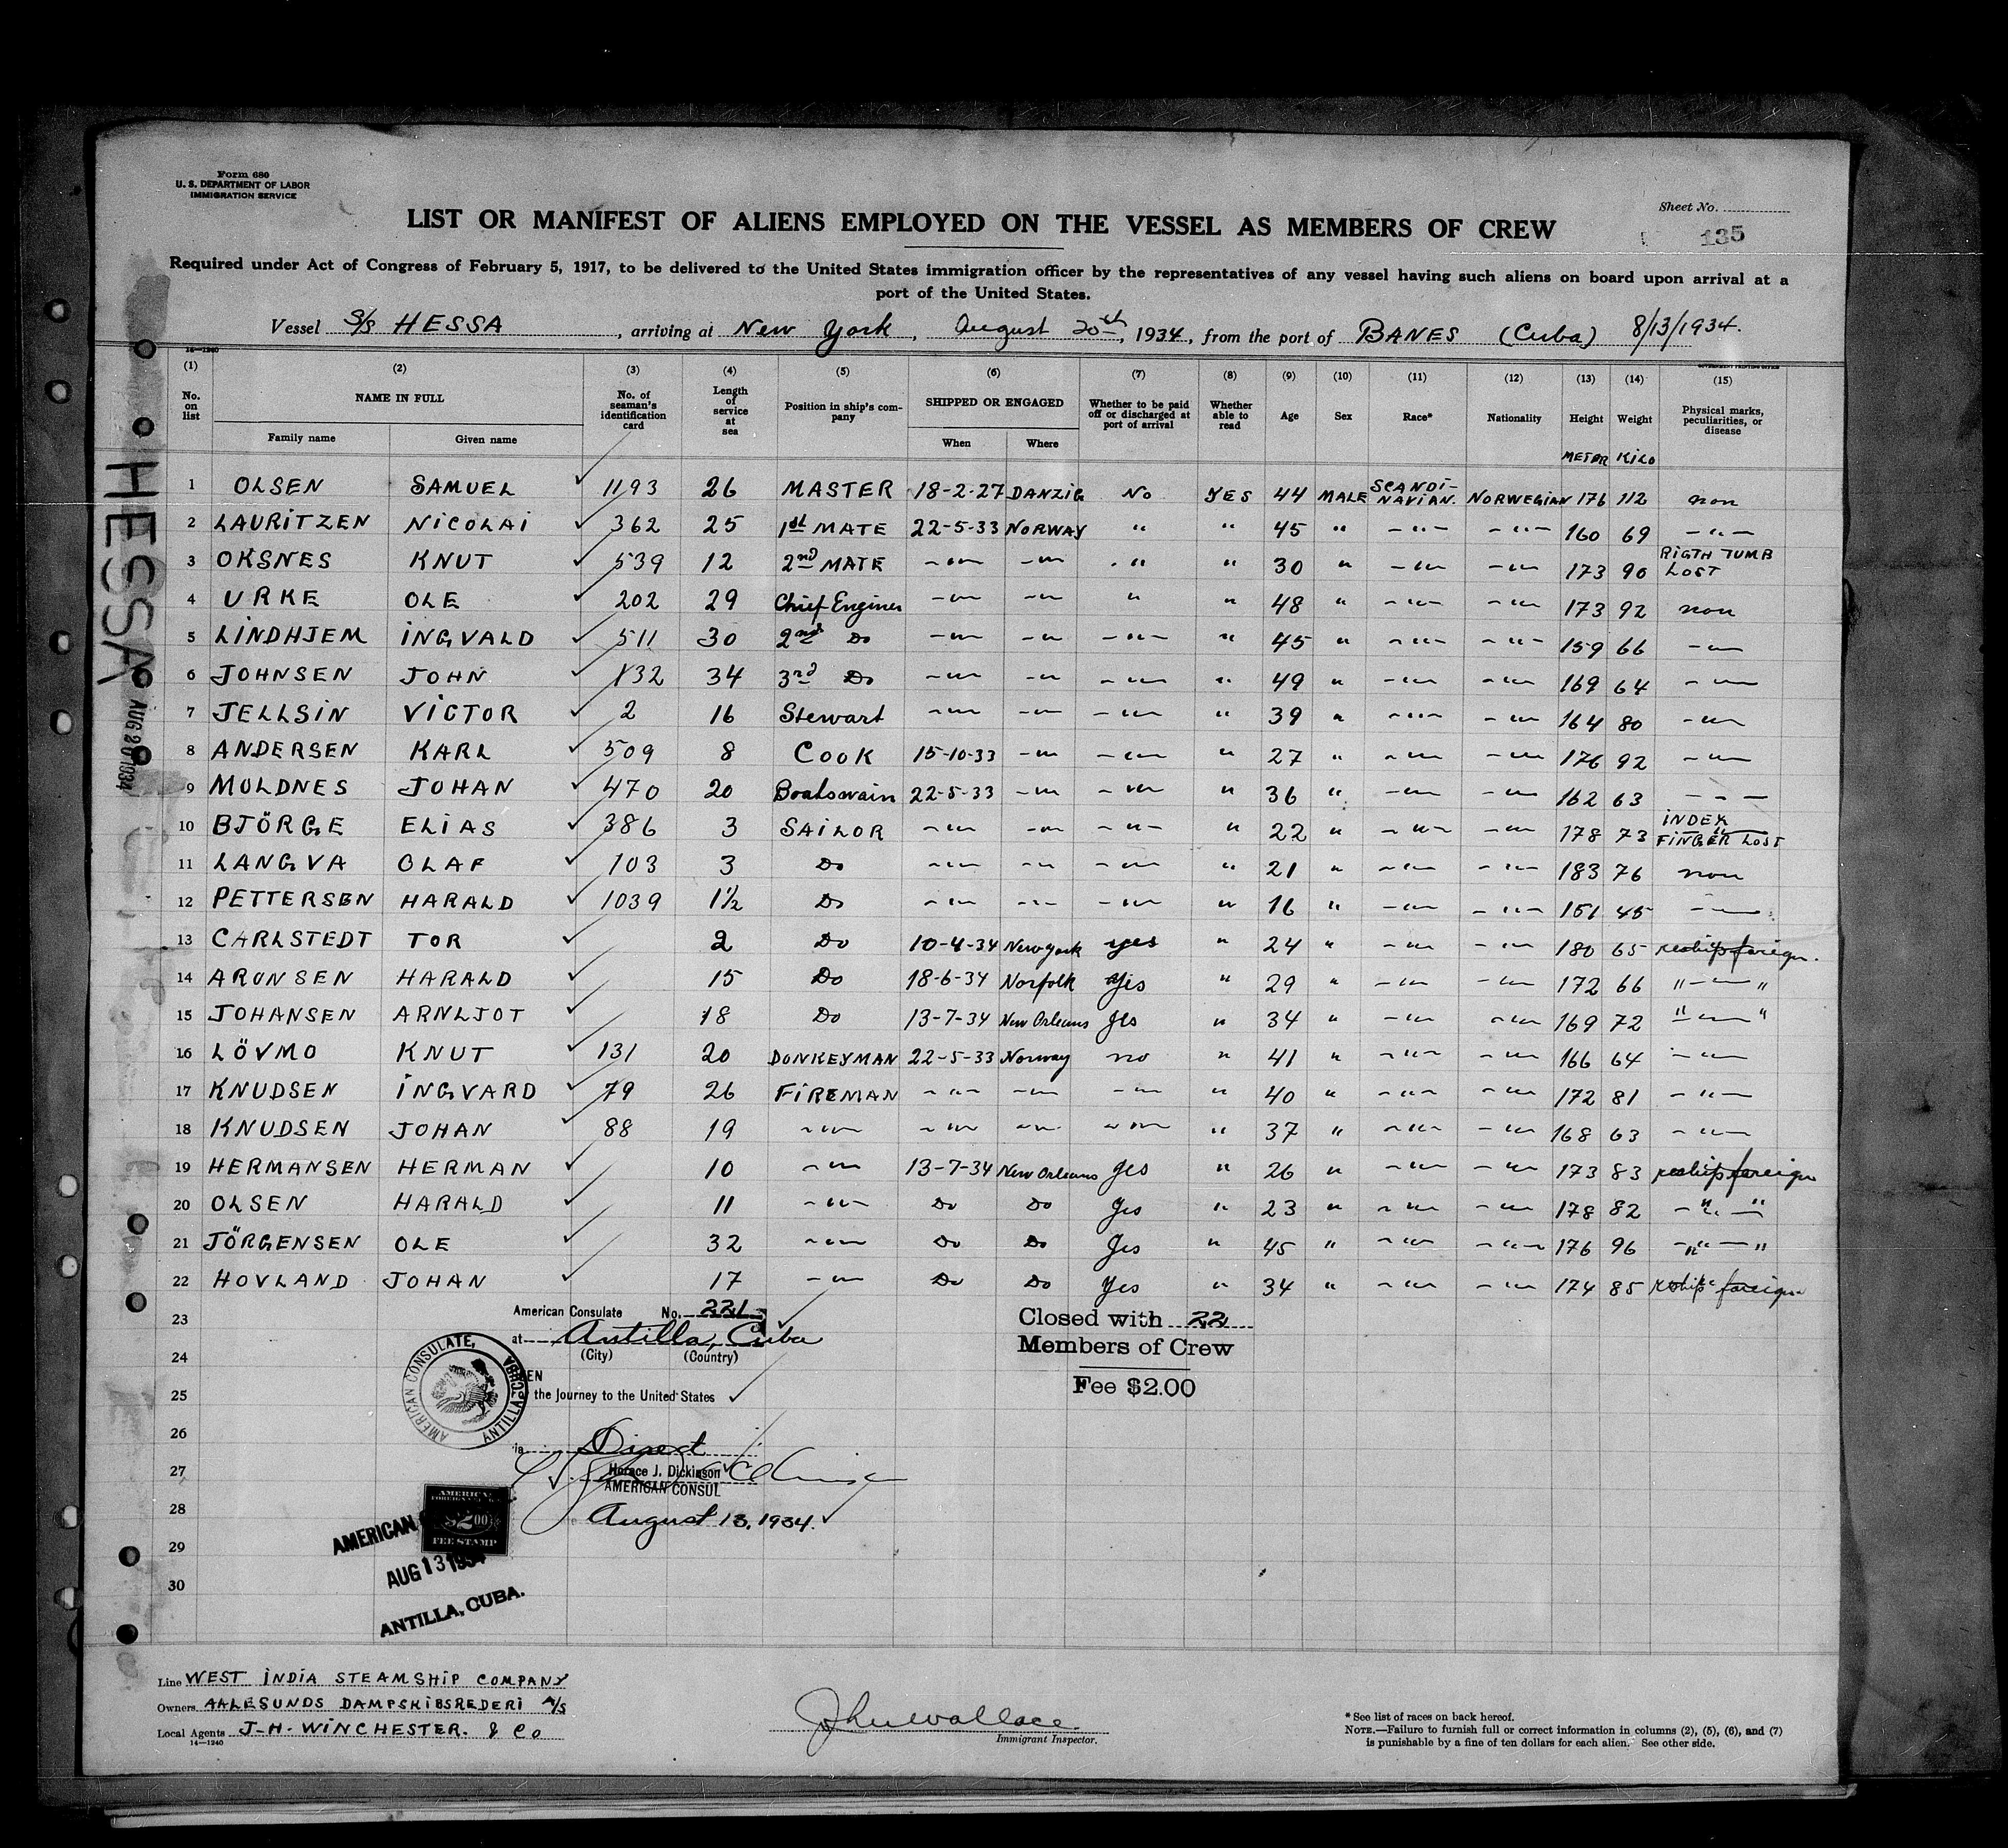 Form 680
U. S. DEPARTMENT OF LABOR
IMMIGRATION SERVICE
LIST OR MANIFEST OF ALIENS EMPLOYED ON THE VESSEL AS MEMBERS OF CREW
Sheet No.
135
Required under Act of Congress of February 5, 1917, to be delivered to the United States immigration officer by the representatives of any vessel having such aliens on board upon arrival at a
port of the United States.
Vessel S/S HESSA, arriving at New York, August 20th, 1934, from the port of BANES (Cuba) 8/13/1934.
14—1240
GOVERNMENT PRINTING OFFICE
(1) (2) (3) (4) (5) (6) (7) (8) (9) (10) (11) (12) (13) (14) (15)
No. on list NAME IN FULL Family name Given name No. of seaman's identification card Length of service at sea Position in ship's company SHIPPED OR ENGAGED When Where Whether to be paid off or discharged at port of arrival Whether able to read Age Sex Race* Nationality Height Weight Physical marks, peculiarities, or disease
METER KILO
1 OLSEN SAMUEL ✓ 1193 26 MASTER 18-2-27 DANZIG No YES 44 MALE SCANDI-NAVIAN. NORWEGIAN 176 112 non
2 LAURITZEN NICOLAI ✓ 362 25 1st MATE 22-5-33 NORWAY " " 45 " -"- -"- 160 69 -"-
3 OKSNES KNUT ✓ 539 12 2nd MATE -"- -"- " " 30 " -"- -"- 173 90 RIGTH TUMB LOST
4 URKE OLE ✓ 202 29 Chief Enginer -"- -"- " " 48 " -"- -"- 173 92 non
5 LINDHJEM INGVALD ✓ 511 30 2nd Do -"- -"- -"- " 45 " -"- -"- 159 66 -"-
6 JOHNSEN JOHN ✓ 132 34 3rd Do -"- -"- -"- " 49 " -"- -"- 169 64 -"-
7 JELLSIN VICTOR ✓ 2 16 Stewart -"- -"- -"- " 39 " -"- -"- 164 80 -"-
8 ANDERSEN KARL ✓ 509 8 COOK 15-10-33 -"- -"- " 27 " -"- -"- 176 92 -"-
9 MOLDNES JOHAN ✓ 470 20 Boatswain 22-5-33 -"- -"- " 36 " -"- -"- 162 63 - - -
10 BJÖRGE ELIAS ✓ 386 3 SAILOR -"- -"- -"- " 22 " -"- -"- 178 73 INDEX FINGER LOST
11 LANGVA OLAF ✓ 103 3 Do -"- -"- -"- " 21 " -"- -"- 183 76 non
12 PETTERSEN HARALD ✓ 1039 1½ Do -"- -"- -"- " 16 " -"- -"- 151 45 -"-
13 CARLSTEDT TOR ✓ 2 Do 10-4-34 New York yes " 24 " -"- -"- 180 65 reship foreign.
14 ARONSEN HARALD ✓ 15 Do 18-6-34 Norfolk Yes " 29 " -"- -"- 172 66 " -"- "
15 JOHANSEN ARNLJOT ✓ 18 Do 13-7-34 New Orleans yes " 34 " -"- -"- 169 72 " -"- "
16 LÖVMO KNUT ✓ 131 20 DONKEYMAN 22-5-33 Norway no " 41 " -"- -"- 166 64 -"-
17 KNUDSEN INGVARD ✓ 79 26 FIREMAN -"- -"- -"- " 40 " -"- -"- 172 81 -"-
18 KNUDSEN JOHAN ✓ 88 19 -"- -"- -"- -"- " 37 " -"- -"- 168 63 -"-
19 HERMANSEN HERMAN ✓ 10 -"- 13-7-34 New Orleans yes " 26 " -"- -"- 173 83 reship foreign
20 OLSEN HARALD ✓ 11 -"- Do Do Yes " 23 " -"- -"- 178 82 -"- "
21 JÖRGENSEN OLE ✓ 32 -"- Do Do Yes " 45 " -"- -"- 176 96 -"- "
22 HOVLAND JOHAN ✓ 17 -"- Do Do Yes " 34 " -"- -"- 174 85 reship foreign
23
24
25
26
27
28
29
30
American Consulate No. 221
at Antilla, Cuba
(City) (Country)
EN
the Journey to the United States ✓
Direct
Horace J. Dickinson
AMERICAN CONSUL
August 13, 1934. ✓
Closed with 22
Members of Crew
Fee $2.00
AMERICAN CONSULATE,
ANTILLA, CUBA
AMERICAN
$2.00
FEE STAMP
AMERICAN
AUG 13 1934
ANTILLA, CUBA.
HESSA
AUG 20 1934
Line WEST INDIA STEAMSHIP COMPANY
Owners AALESUNDS DAMPSKIBSREDERI A/S
Local Agents J-H-WINCHESTER. & Co
14—1240
John Wallace
Immigrant Inspector.
* See list of races on back hereof.
NOTE.—Failure to furnish full or correct information in columns (2), (5), (6), and (7)
is punishable by a fine of ten dollars for each alien. See other side.